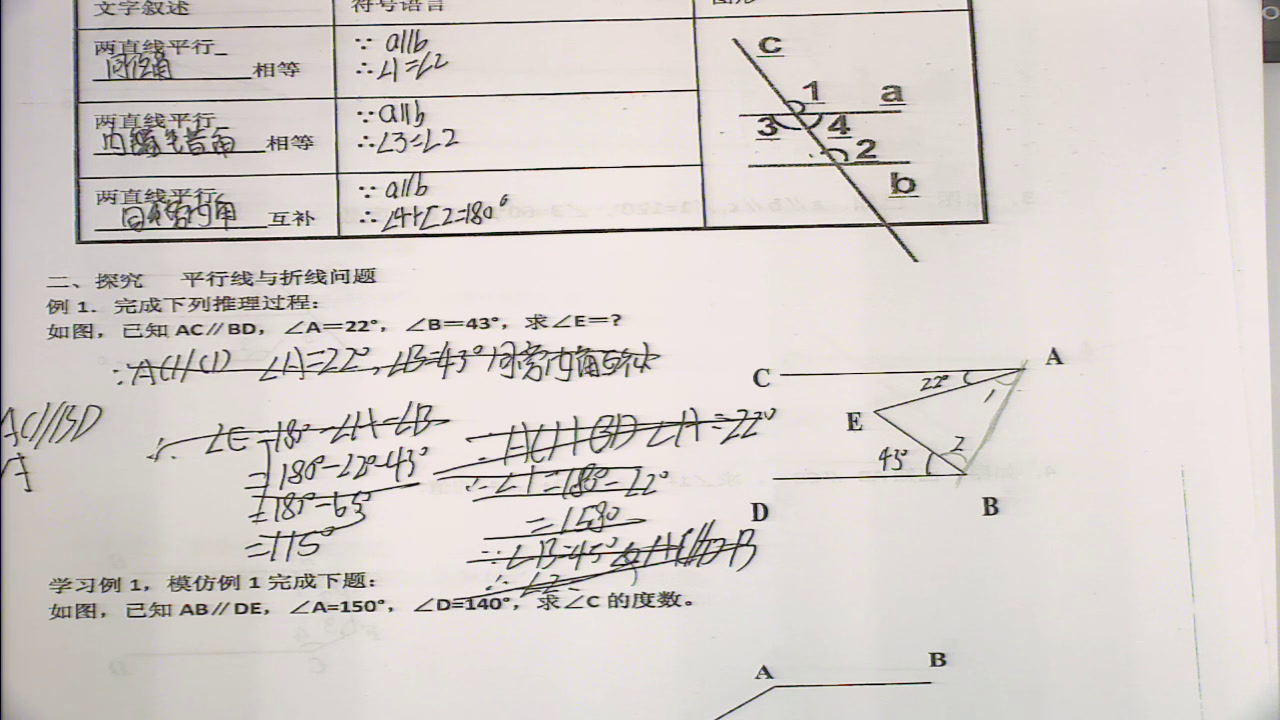 文字叙述 符号语言 图形
两直线平行
同位角 相等
∵ a∥b
∴∠1=∠2
两直线平行
内错角 相等
∵a∥b
∴∠3=∠2
两直线平行
同旁内角 互补
∵ a∥b
∴∠4+∠2=180°
c
1
a
3
4
2
b
二、探究 平行线与折线问题
例 1. 完成下列推理过程:
如图, 已知 AC∥BD, ∠A=22°, ∠B=43°, 求∠E=?
∠A=22°, ∠B=43° 同旁内角互补
AC∥BD
∴ ∠E=180°-∠A-∠B
=180°-22°-43°
=180°-65°
=115°
∵AC∥BD ∠A=22°
∴∠1=180°-22°
=158°
∴∠2
C
A
22°
1
E
43°
2
D
B
学习例 1, 模仿例 1 完成下题:
如图, 已知 AB∥DE, ∠A=150°, ∠D=140°, 求∠C 的度数。
A
B